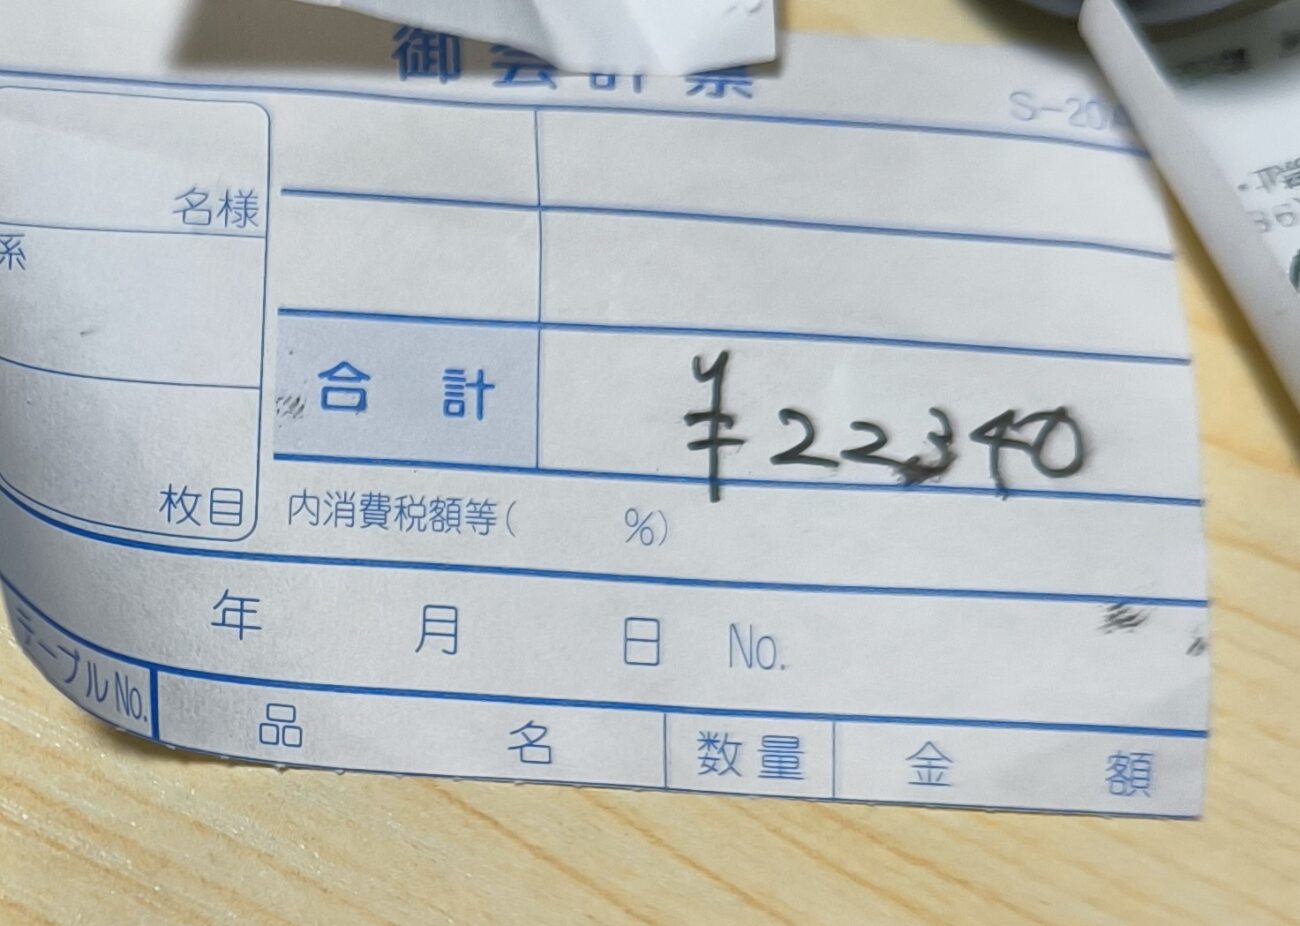 御会計票
S-20
名様
系
合計 ¥22340
枚目
内消費税額等( %)
年 月 日 No.
テーブルNo. 品名 数量 金額